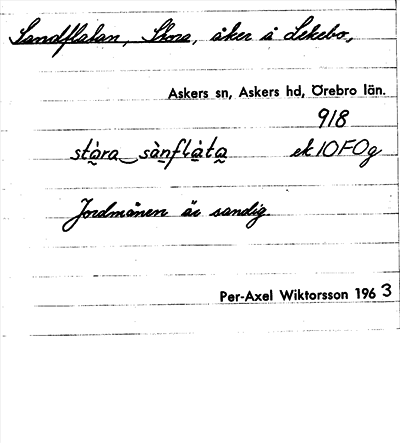 Sandflatan, Stora, åker å Lekebo,
Askers sn, Askers hd, Örebro län.
918
stɷ̀ra sànflàta ek 10FOg
Jordmånen är sandig.
Per-Axel Wiktorsson 1963